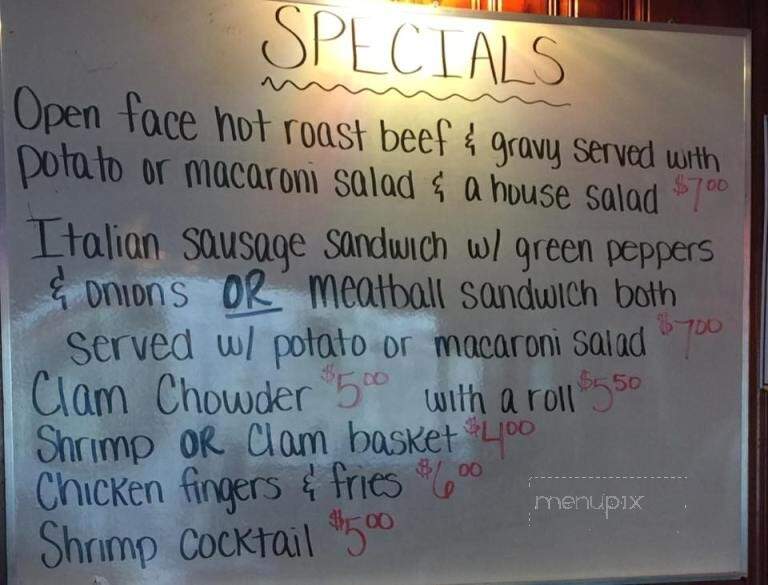 SPECIALS
Open face hot roast beef & gravy served with
potato or macaroni salad & a house salad $7.00
Italian sausage sandwich w/ green peppers
& onions OR meatball sandwich both
served w/ potato or macaroni salad $7.00
Clam Chowder $5.00 with a roll $5.50
Shrimp OR Clam basket $4.00
Chicken fingers & fries $6.00
Shrimp cocktail $5.00
menupix